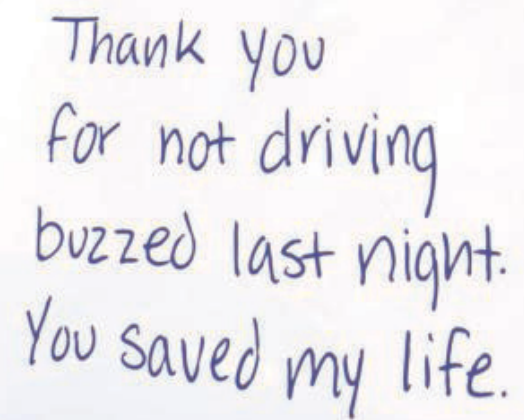 Thank you
for not driving
buzzed last night.
You saved my life.